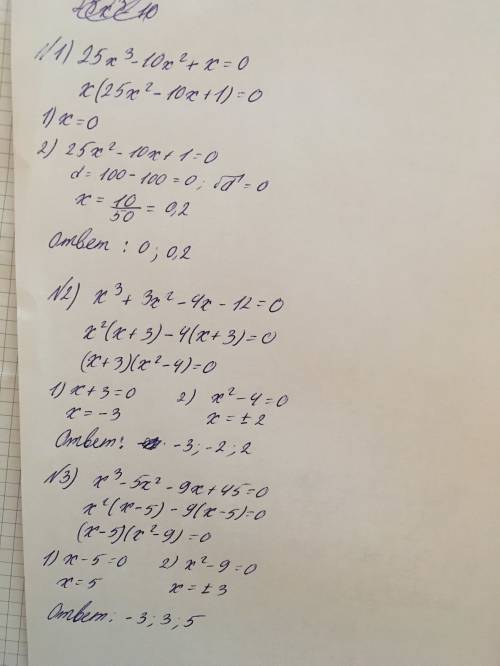 №1) 25x³ - 10x² + x = 0
x(25x² - 10x + 1) = 0
1) x = 0
2) 25x² - 10x + 1 = 0
d = 100 - 100 = 0; √d = 0
x = 10/50 = 0,2
Ответ : 0 ; 0,2
№2) x³ + 3x² - 4x - 12 = 0
x²(x + 3) - 4(x + 3) = 0
(x + 3)(x² - 4) = 0
1) x + 3 = 0 2) x² - 4 = 0
x = -3 x = ± 2
Ответ: -3 ; -2 ; 2
№3) x³ - 5x² - 9x + 45 = 0
x²(x - 5) - 9(x - 5) = 0
(x - 5)(x² - 9) = 0
1) x - 5 = 0 2) x² - 9 = 0
x = 5 x = ± 3
Ответ: -3 ; 3 ; 5